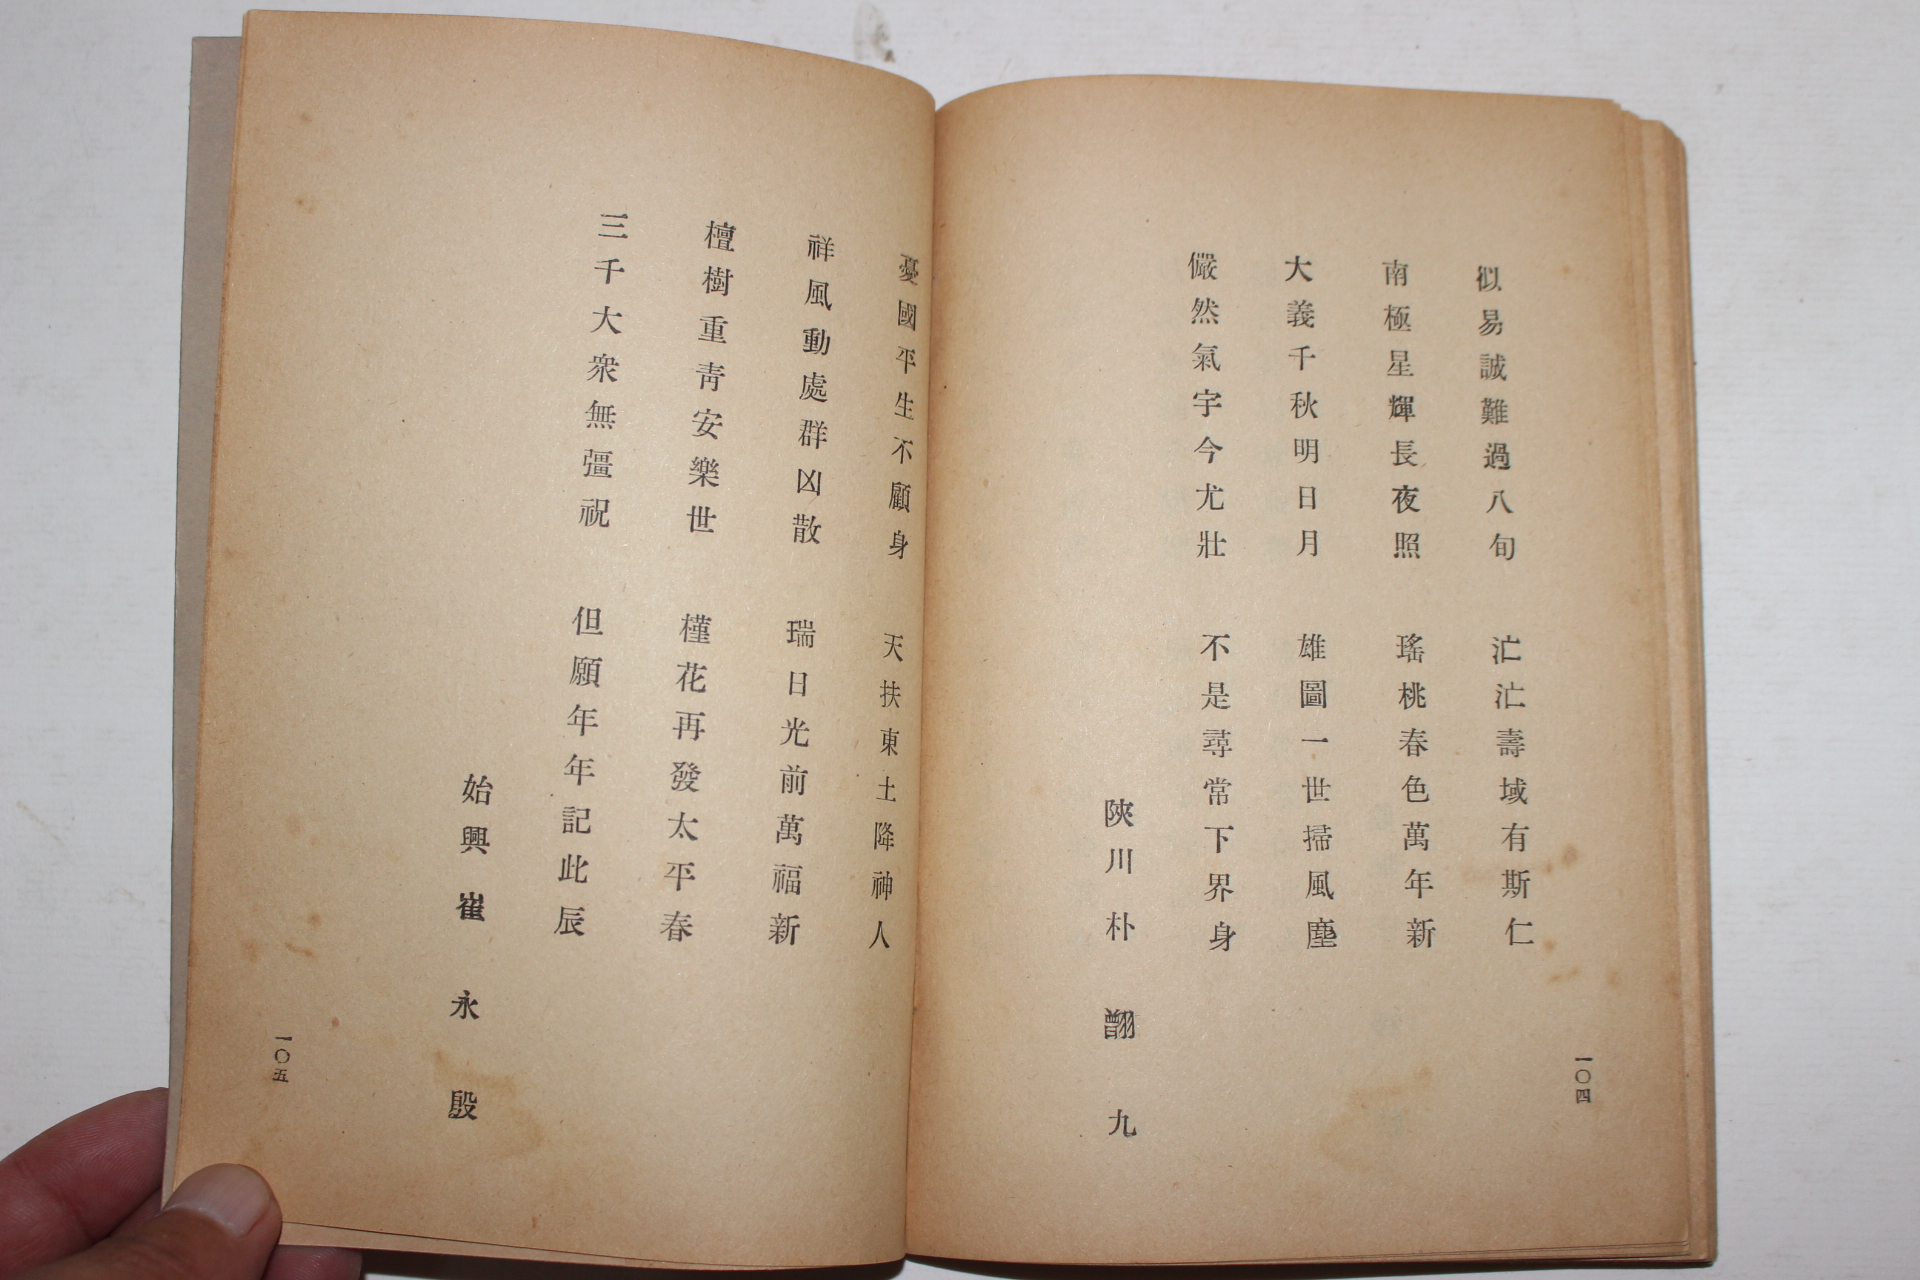 似易誠難過八旬　茫茫壽域有斯仁
南極星輝長夜照　瑤桃春色萬年新
大義千秋明日月　雄圖一世掃風塵
儼然氣宇今尤壯　不是尋常下界身
陜川 朴 九
一〇四
憂國平生不顧身　天扶東土降神人
祥風動處群凶散　瑞日光前萬福新
檀樹重靑安樂世　槿花再發太平春
三千大衆無彊祝　但願年年記此辰
始興 崔永殷
一〇五